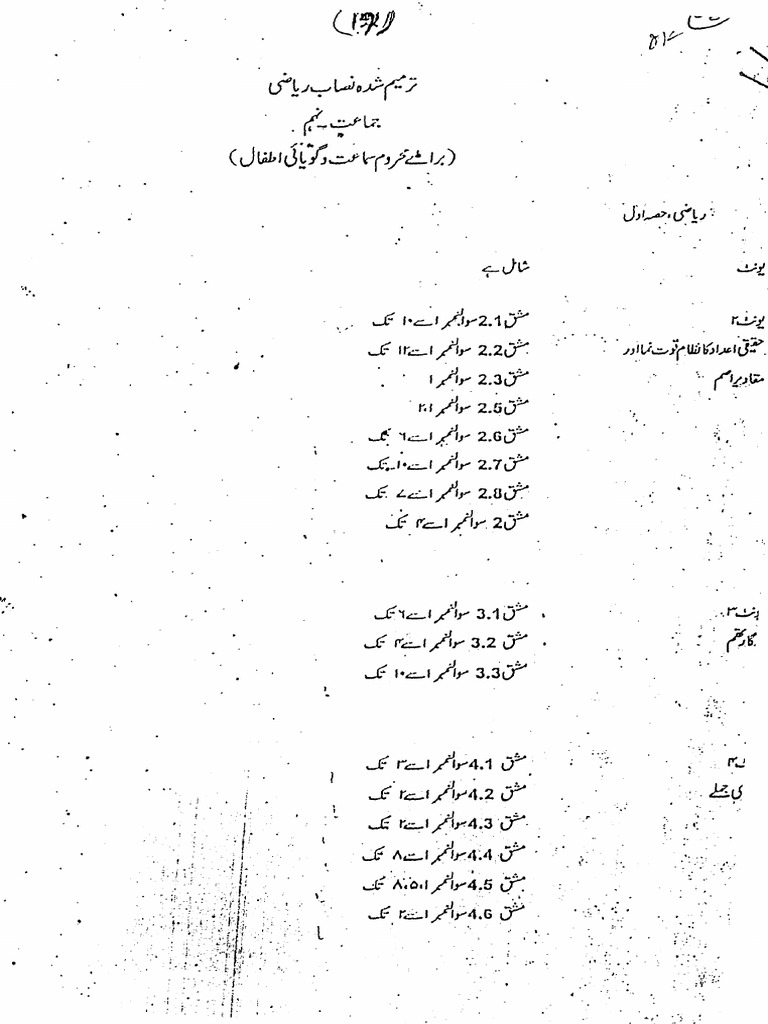 ترمیم شدہ نصاب ریاضی
جماعت نہم
(برائے محروم سماعت و گویائی اطفال)
ریاضی، حصہ اول
یونٹ شامل ہے
یونٹ ۲ مشق 2.1 سوالنمبر ا سے ۱۰ تک
حقیقی اعداد کا نظام قوت نما اور مشق 2.2 سوالنمبر ا سے ۱۲ تک
مقادیر اصم مشق 2.3 سوالنمبر ۱
مشق 2.5 سوالنمبر ۲،۱
مشق 2.6 سوالنمبر ا سے ۶ تک
مشق 2.7 سوالنمبر ا سے ۱۰ تک
مشق 2.8 سوالنمبر ا سے ۷ تک
مشق 2 سوالنمبر ا سے ۴ تک
نٹ ۳ مشق 3.1 سوالنمبر ا سے ۶ تک
گارتھم مشق 3.2 سوالنمبر ا سے ۴ تک
مشق 3.3 سوالنمبر ا سے ۱۰ تک
۴ مشق 4.1 سوالنمبر ا سے ۳ تک
ی جملے مشق 4.2 سوالنمبر ا سے ۲ تک
مشق 4.3 سوالنمبر ا سے ۲ تک
مشق 4.4 سوالنمبر ا سے ۸ تک
مشق 4.5 سوالنمبر ۸،۵،۱ تک
مشق 4.6 سوالنمبر ا سے ۲ تک